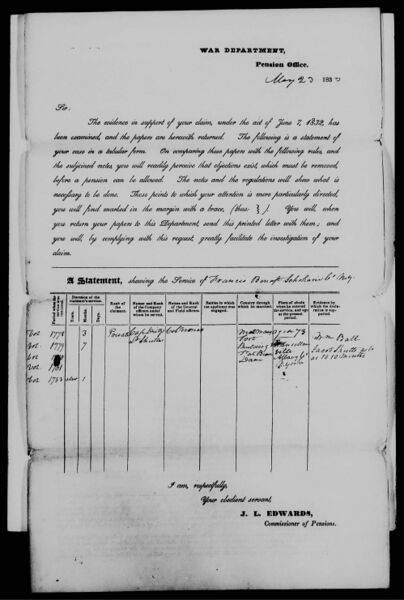 WAR DEPARTMENT,
Pension Office.
May 23 183
Sir:
The evidence in support of your claim, under the act of June 7, 1832, has
been examined, and the papers are herewith returned. The following is a statement of
your case in a tabular form. On comparing these papers with the following rules, and
the subjoined notes, you will readily perceive that objections exist, which must be removed,
before a pension can be allowed. The notes and the regulations will shew what is
necessary to be done. Those points to which your attention is more particularly directed,
you will find marked in the margin with a brace, (thus: }.) You will, when
you return your papers to this Department, send this printed letter with them; and
you will, by complying with this request, greatly facilitate the investigation of your
claim.
A Statement, shewing the Service of Francis Schoharie Co
Period when the service was rendered.
Duration of the claimant's service.
Years. Months. Days.
Rank of the claimant.
Names and Rank of the Company officers under whom he served.
Names and Rank of the General and Field officers.
Battles in which the applicant was engaged.
Country through which he marched.
Place of abode when he entered the service, and age at the present period.
Evidence by which the declaration is supported.
1778 3 Private Capt
1779 7
1781
1782 1
Fort
Dam
73
Albany Co
Ball
Jacob
I am, respectfully,
Your obedient servant,
J. L. EDWARDS,
Commissioner of Pensions.